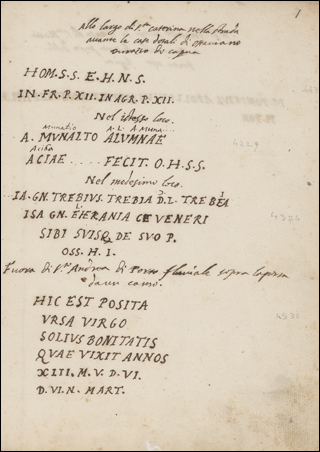 1
Allo largo di S.ta caterina nella strada
avante la casa dotali di
di capua
HOM. S. S. E. H. N. S.
IN. FR. P. XII. IN AGR. P. XII.
Nel istesso loco.
munatio A. L. A Muna...
A. MVNALTO ALVMNAE
Aciba
ACIAE .... FECIT. O. H. S. S.
Nel medesimo loco.
...IA. GN. TREBIVS. TREBIA D. L. TREBEA
ISA GN. L. EIERANIA CE VENERI
SIBI SVISQ. DE SVO P.
OSS. H. I.
Fuora di S.to Andrea di fluviale sopra la
da un canto.
HIC EST POSITA
VRSA VIRGO
SOLIVS BONITATIS
QVAE VIXIT ANNOS
XIII. M. V. D. VI.
D. VI. N. MART.